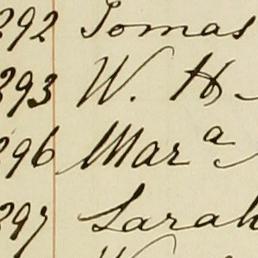 292 Tomas
293 W. H
296 Marª
297 Sarah